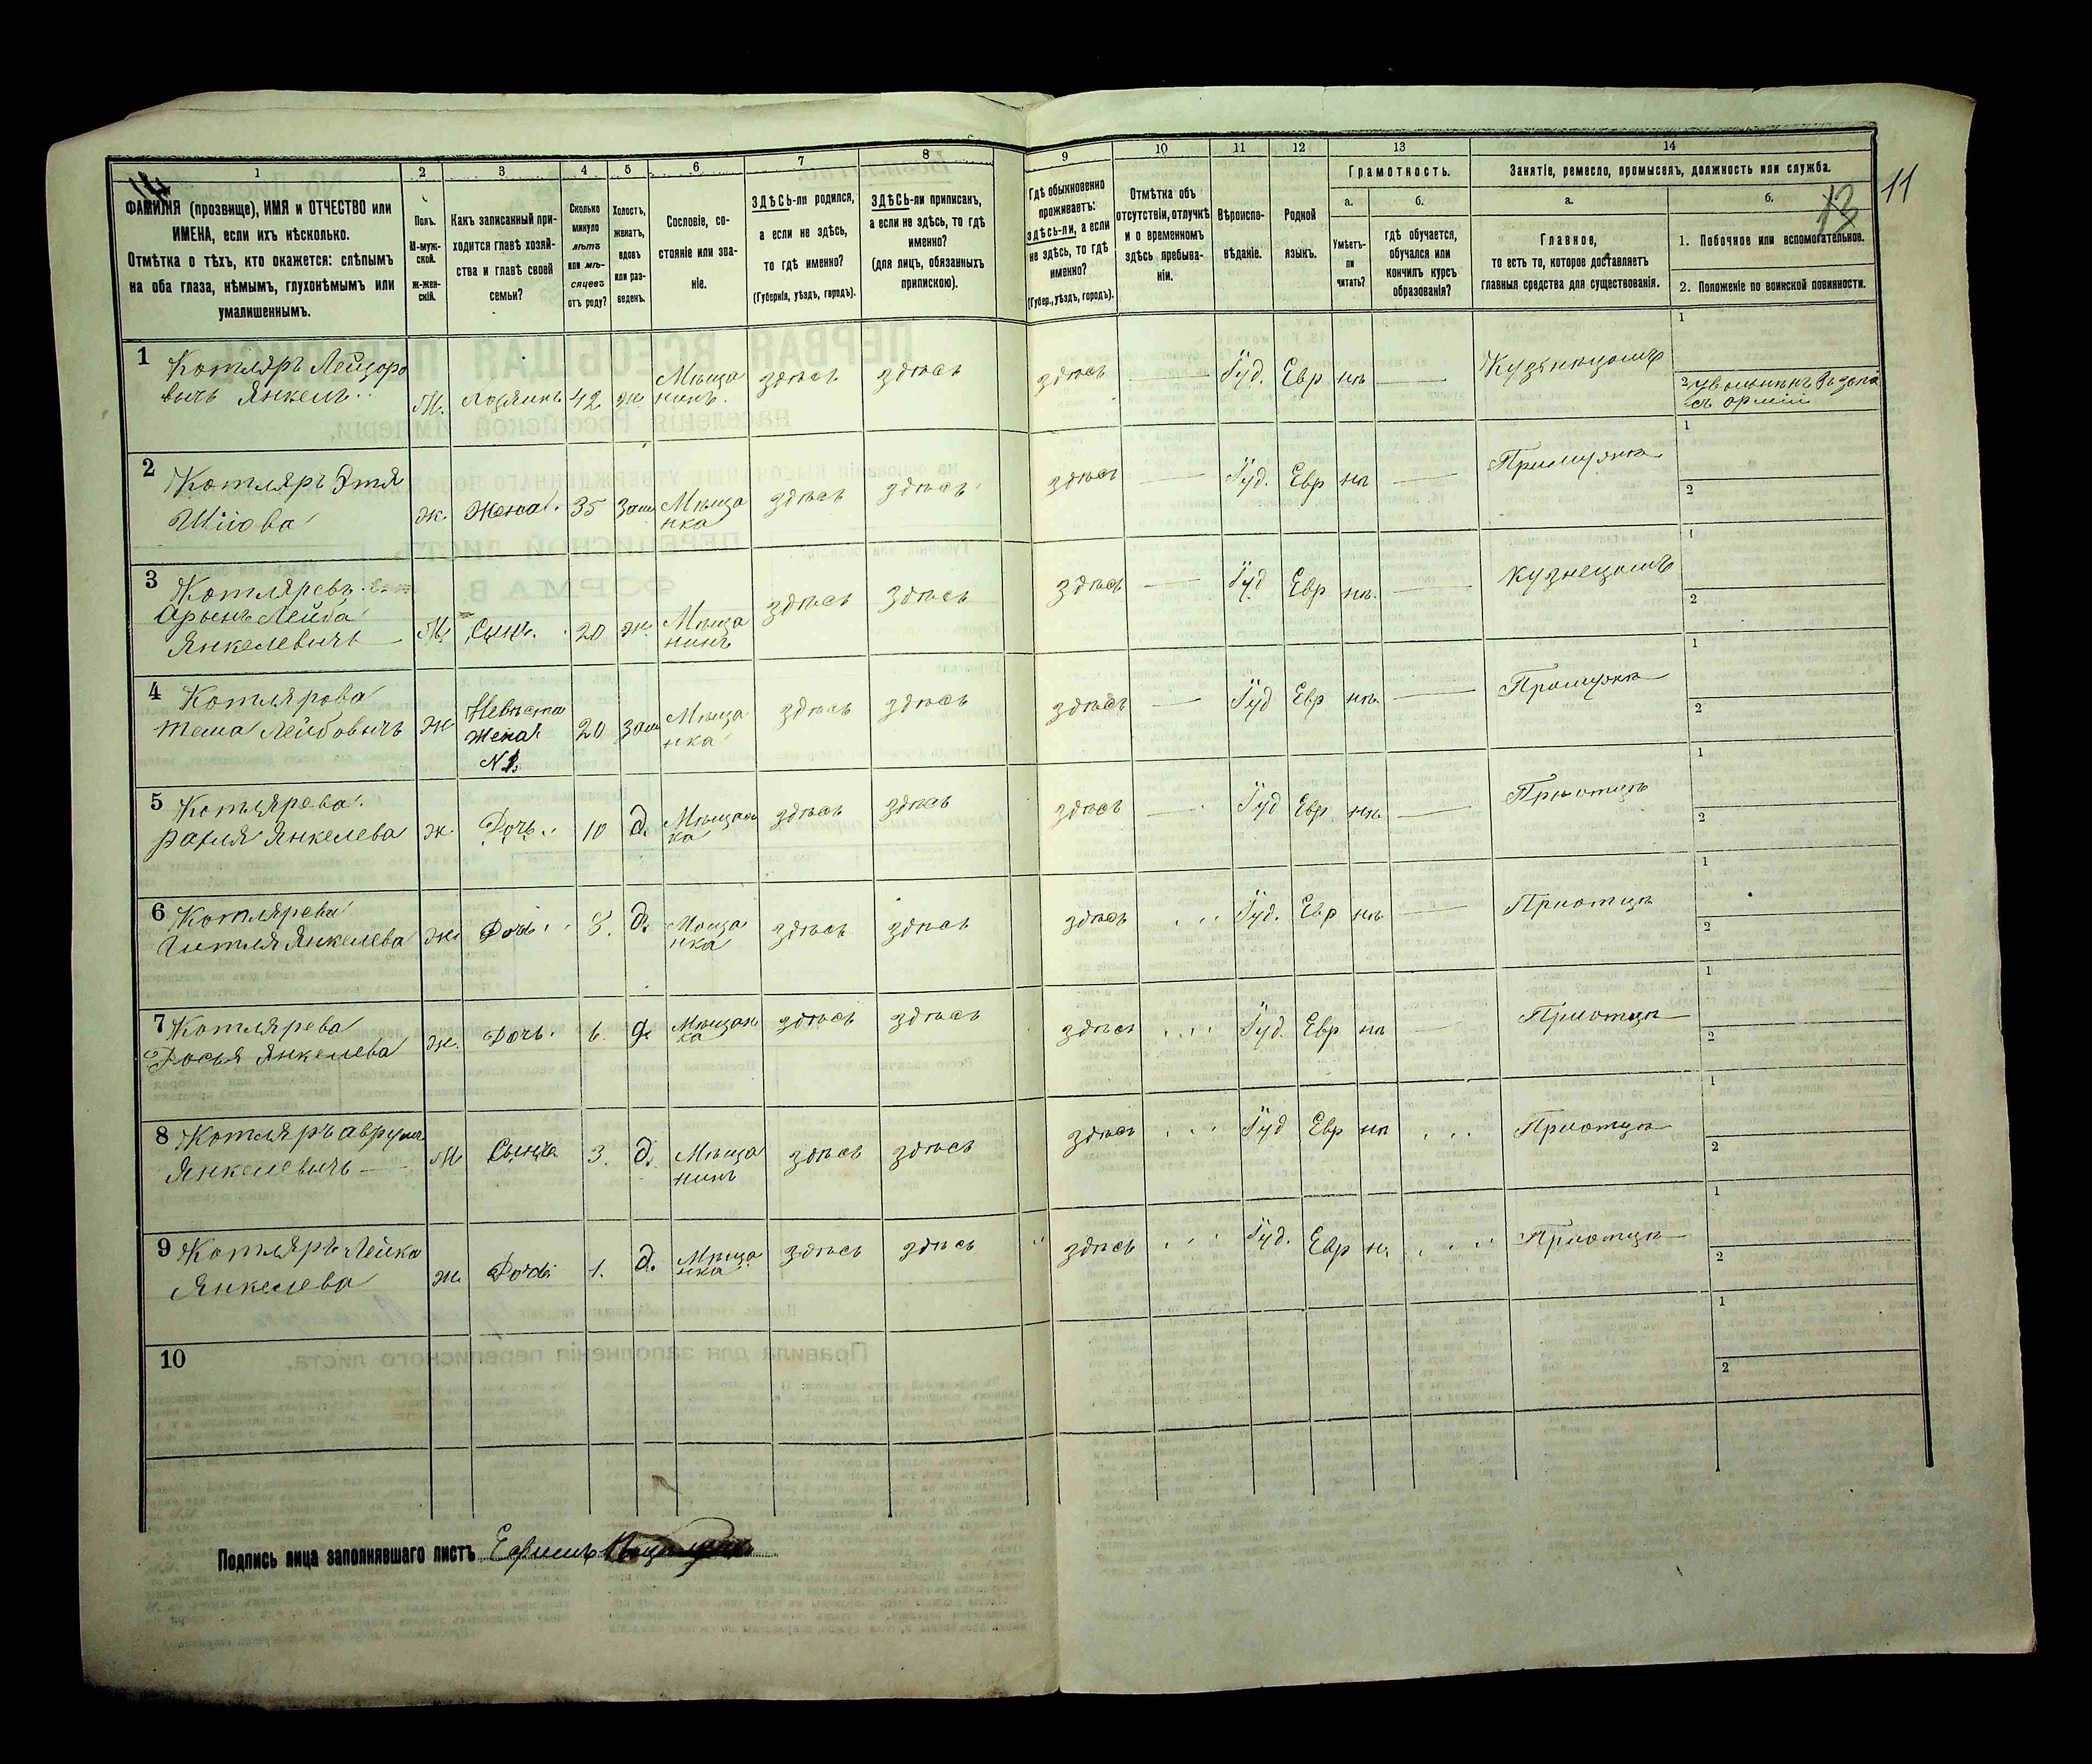 1 2 3 4 5 6 7 8 9 10 11 12 13 14
11
13
ФАМИЛІЯ (прозвище), ИМЯ и ОТЧЕСТВО или
ИМЕНА, если ихъ нѣсколько.
Отмѣтка о тѣхъ, кто окажется: слѣпымъ
на оба глаза, нѣмымъ, глухонѣмымъ или
умалишеннымъ.
Полъ.
М-муж-
ской.
Ж-жен-
скій.
Какъ записанный при-
ходится главѣ хозяй-
ства и главѣ своей
семьи?
Сколько
минуло
лѣтъ
или мѣ-
сяцевъ
отъ роду?
Холостъ,
женатъ,
вдовъ
или раз-
веденъ.
Сословіе, со-
стояніе или зва-
ніе.
ЗДѢСЬ-ли родился,
а если не здѣсь,
то гдѣ именно?
(Губернія, уѣздъ, городъ).
ЗДѢСЬ-ли приписанъ,
а если не здѣсь, то гдѣ
именно?
(для лицъ, обязанныхъ
припискою).
Гдѣ обыкновенно
проживаетъ:
здѣсь-ли, а если
не здѣсь, то гдѣ
именно?
(Губер., уѣздъ, городъ).
Отмѣтка объ
отсутствіи, отлучкѣ
и о временномъ
здѣсь пребыва-
ніи.
Вѣроиспо-
вѣданіе.
Родной
языкъ.
Грамотность.
а.
Умѣетъ-
ли
читать?
б.
гдѣ обучается,
обучался или
кончилъ курсъ
образованія?
Занятіе, ремесло, промыселъ, должность или служба.
а.
Главное,
то есть то, которое доставляетъ
главныя средства для существованія.
б.
1. Побочное или вспомогательное.
2. Положеніе по воинской повинности.
1 Котляръ Лейзоро
вичъ Янкель
М. Хозяинъ 42 ж. Мѣща
нинъ здѣсь здѣсь здѣсь — Іуд. Евр нѣ —
1
2
2 Котляръ Этя
ж. Жена 35 зам Мѣща
нка здѣсь здѣсь здѣсь — Іуд. Евр нѣ — Примужѣ
1
2
3 Котляревъ
Лейба
Янкелевичъ
М. Сынъ 20 ж. Мѣща
нинъ здѣсь здѣсь здѣсь — Іуд Евр нѣ. — Кузнецомъ
1
2
4 Котлярова
Лейбовичъ
ж Невѣста
жена
20 зам Мѣща
нка здѣсь здѣсь здѣсь — Іуд Евр нѣ. — Примужѣ
1
2
5 Котлярева
Рахля Янкелева
ж. Дочь 10 д. Мѣщан
ка здѣсь здѣсь здѣсь — Іуд Евр. нѣ. — Приотцѣ
1
2
6 Котлярева
Гитля Янкелева
ж. Дочь 8. д. Мѣща
нка здѣсь здѣсь здѣсь Іуд. Евр нѣ — Приотцѣ
1
2
7 Котлярева
Янкелева
ж. Дочь 6. д. Мѣщан
ка здѣсь здѣсь здѣсь Іуд. Евр нѣ — Приотцѣ
1
2
8 Котляръ Аврумъ
Янкелевичъ —
М 3. д. Мѣща
нинъ здѣсь здѣсь здѣсь Іуд Евр нѣ Приотцѣ
1
2
9 Котляръ Лейка
Янкелева
ж. Дочь 1. д. Мѣща
нка здѣсь здѣсь здѣсь Іуд. Евр нѣ Приотцѣ
1
2
10
1
2
Подпись лица заполнявшаго листъ